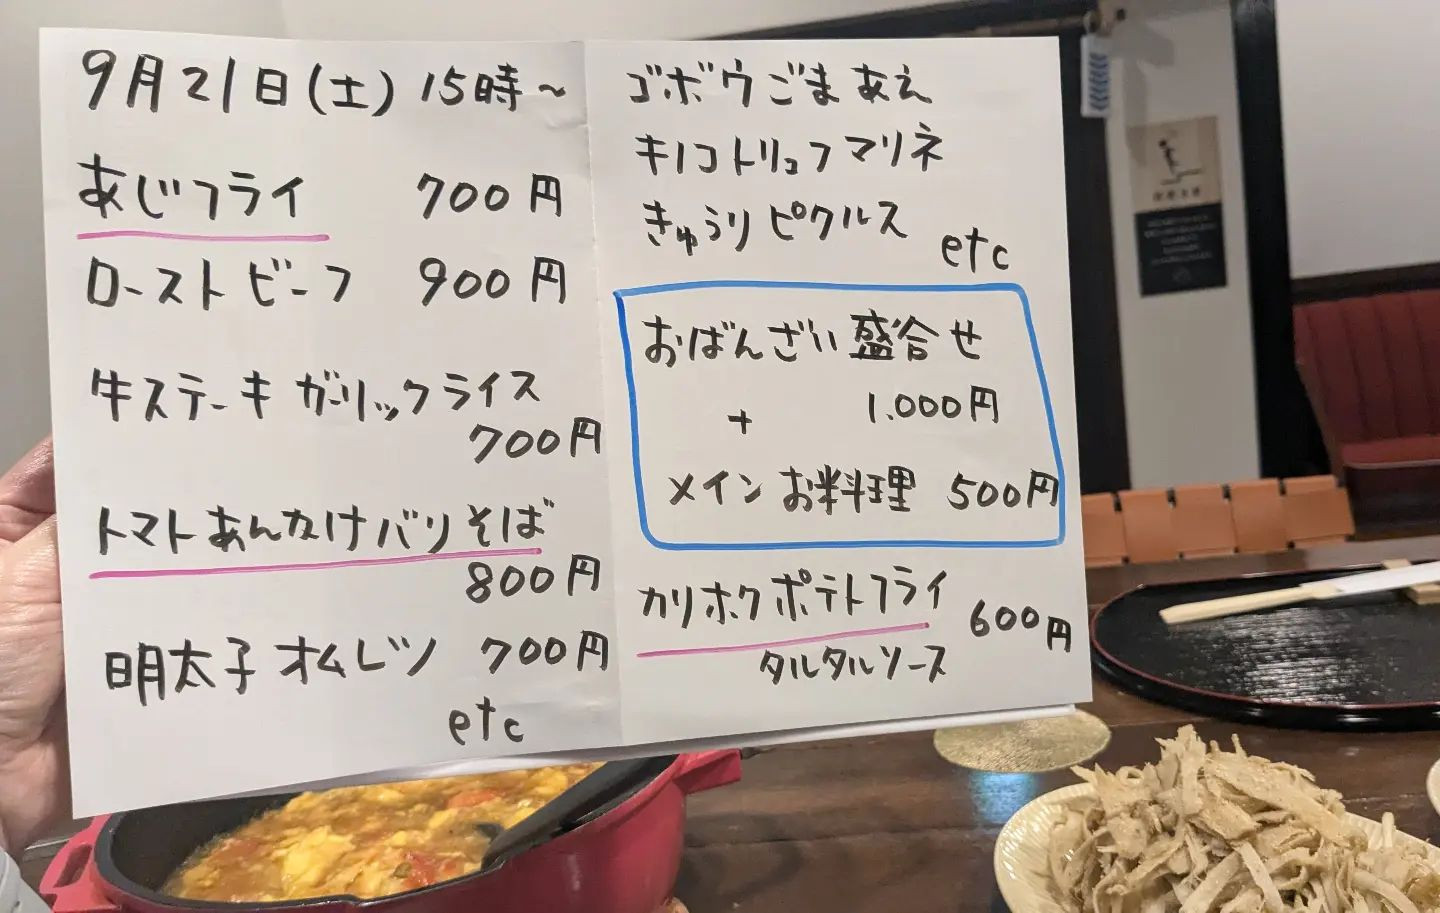 9月21日(土) 15時~
あじフライ 700円
ローストビーフ 900円
牛ステーキガーリックライス
700円
トマトあんかけバリそば
800円
明太子オムレツ 700円
etc
ゴボウごまあえ
キノコトリュフマリネ
きゅうりピクルス
etc
おばんざい盛合せ
+ 1.000円
メインお料理 500円
カリホクポテトフライ 600円
タルタルソース